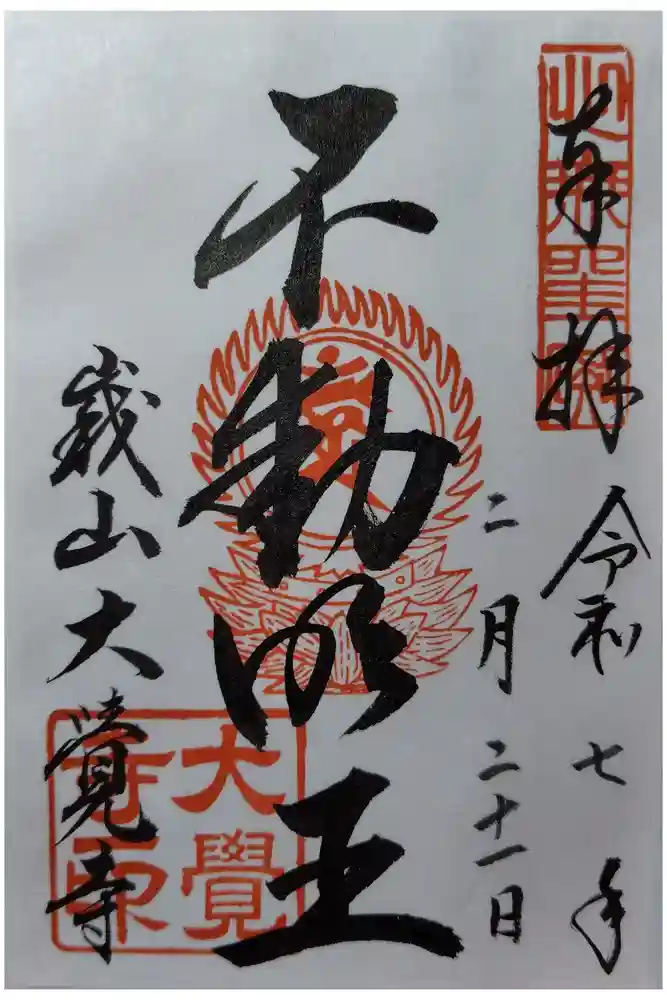 奉拝
令和七年
二月二十一日
不動明王
嵯山大覺寺
大覺
寺印